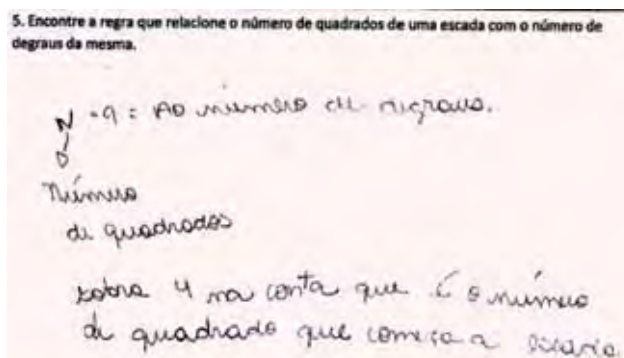 5. Encontre a regra que relacione o número de quadrados de uma escada com o número de
degraus da mesma.
N - 9 = Ao número de degraus.
Número
de quadrados
sobra 4 na conta que é o número
de quadrado que começa a escada